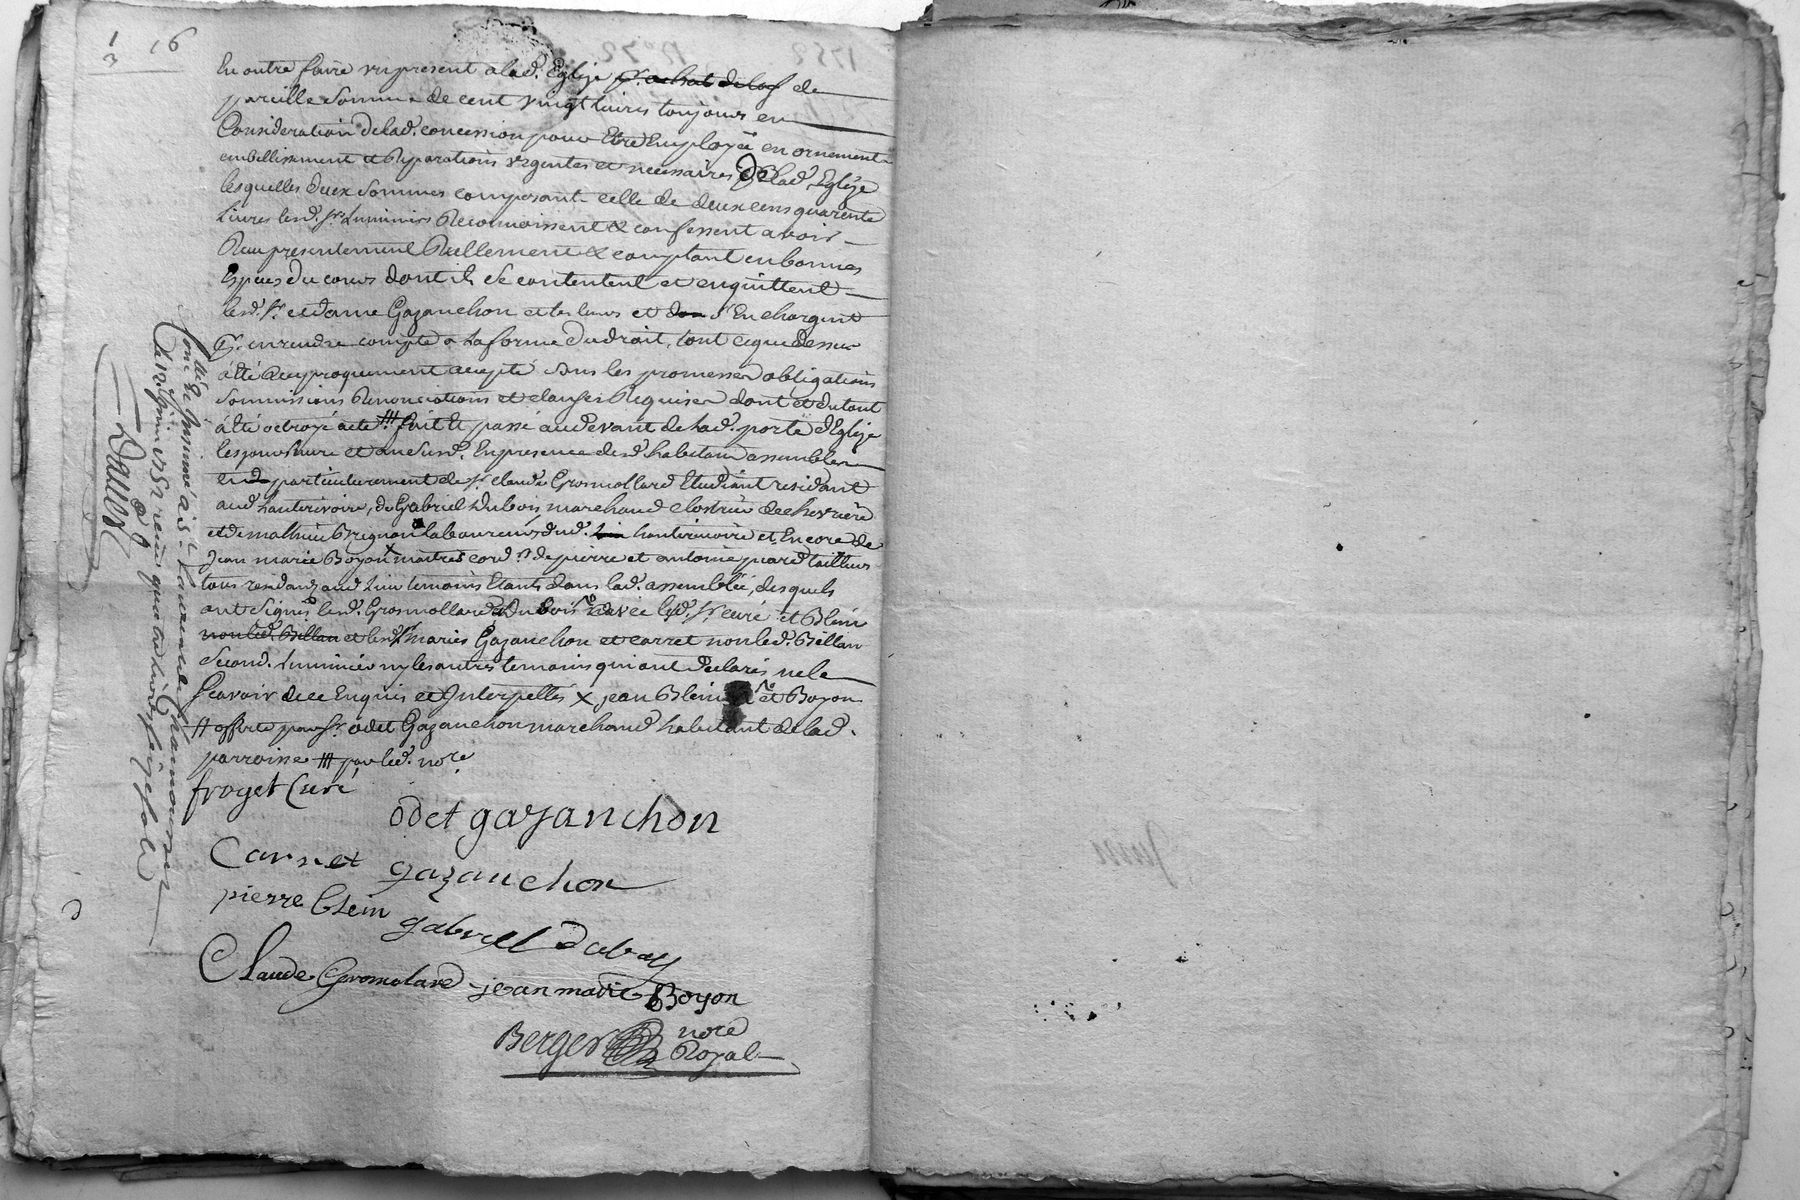 1 16
3
En outre faire un present a lad. Eglise pr. achat de lad de
pareille Somme de cent vingt livres toujours en
Consideration de lad. concession pour Etre Employée en ornements
embellissement et Reparations urgentes et necessaires de lad. Eglise
lesquelles deux Sommes composant celle de deux cens quarente
Livres lesd. srs. Luminiers Reconnoissent & confessent avoir
Reçu presentement Reellement & comptant en bonnes
Especes du cours dont ils Se contentent et en quittent
led. sr. et dame Gazanchon et les leurs et don S'En chargent
pr. en rendre compte a La forme du droit, tout ce que dessus
a été Reciproquement accepté sous les promesses obligations
Soumissions Renonciations et clauses Requises dont et du tout
a été octroyé acte ╫ fait et passé au devant de lad. porte d'Eglise
les jour heure et an susd. En presence desd. habitans assemblés
et particulierement de sr. claude Grosmollard Etudiant residant
aud. hauterivoire, de Gabriel Dubois marchand
et de mathieu Brignon Laboureur dud. Lieu hauterivoire et Encore de
Jean marie Boyon x maitres cord.rs de pierre et antoine tailleurs
tous residants aud. Lieu temoins Etants dans lad. assemblée, desquels
ont Signés lesd. Grosmollard et Dubois avec led. sr. curé et Blein
non led. Billan et lesd. srs. mariés Gazanchon et carret non led. Billan
Second. Luminier ny les autres temoins qui ont declarés ne le
Scavoir de ce Enquis et Interpellés x jean Blein et Boyon
╫ offerte par sr. odet Gazanchon marchand habitant de lad.
parroisse ╫ par led. nore
froget Curé
odet gazanchon
Carret gazanchon
pierre blein gabriel duboy
Claude Gromolard jean marie Boyon
Berger nore
Royal
Conllé & Insinué a St Laurent de Chamousset
Le 12. Juin 1752 reçu quatre livres seize sols
Dauer